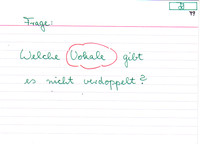 99
Frage:
Welche Vokale gibt
es nicht verdoppelt?